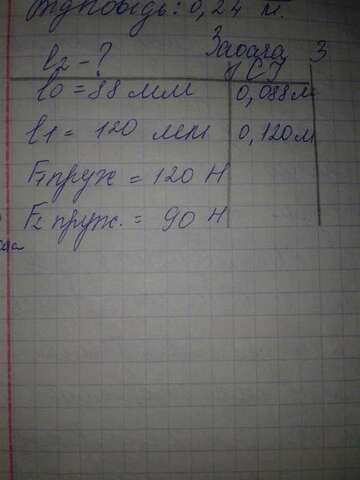 Відповідь: 0,24 м.
Задача 3
l2 - ?
у СІ
l0 = 88 мм 0,088 м
l1 = 120 мм 0,120 м
F1 пруж = 120 Н
F2 пруж. = 90 Н